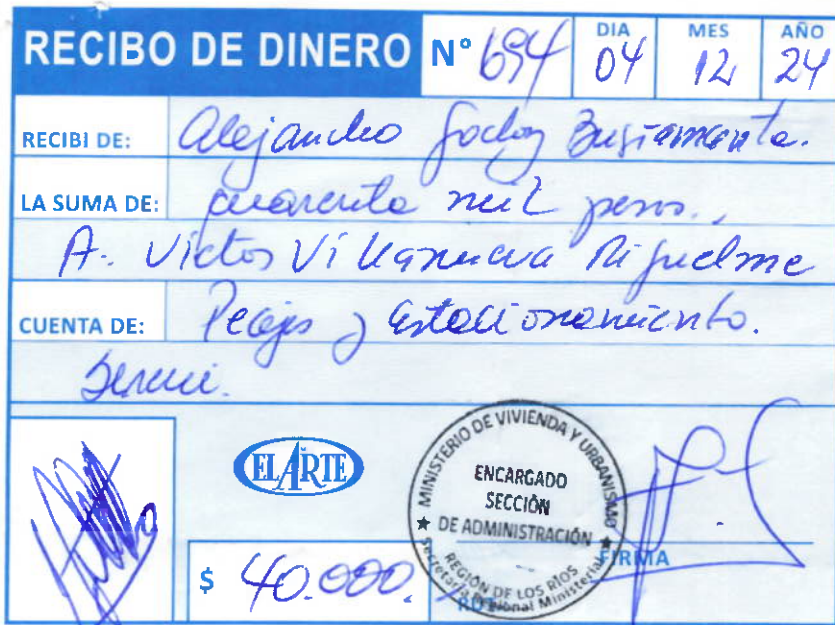 RECIBO DE DINERO N° 694 DIA 04 MES 12 AÑO 24
RECIBI DE: Alejandro Godoy Bustamante.
LA SUMA DE: cuarenta mil pesos.,
A. Victor Villanueva Riquelme
CUENTA DE: Peajes y Estacionamiento.
Seremi.
EL ARTE
MINISTERIO DE VIVIENDA Y URBANISMO
ENCARGADO
SECCIÓN
DE ADMINISTRACIÓN
REGIÓN DE LOS RIOS
Secretaría Regional Ministerial
FIRMA
$ 40.000.
RUT